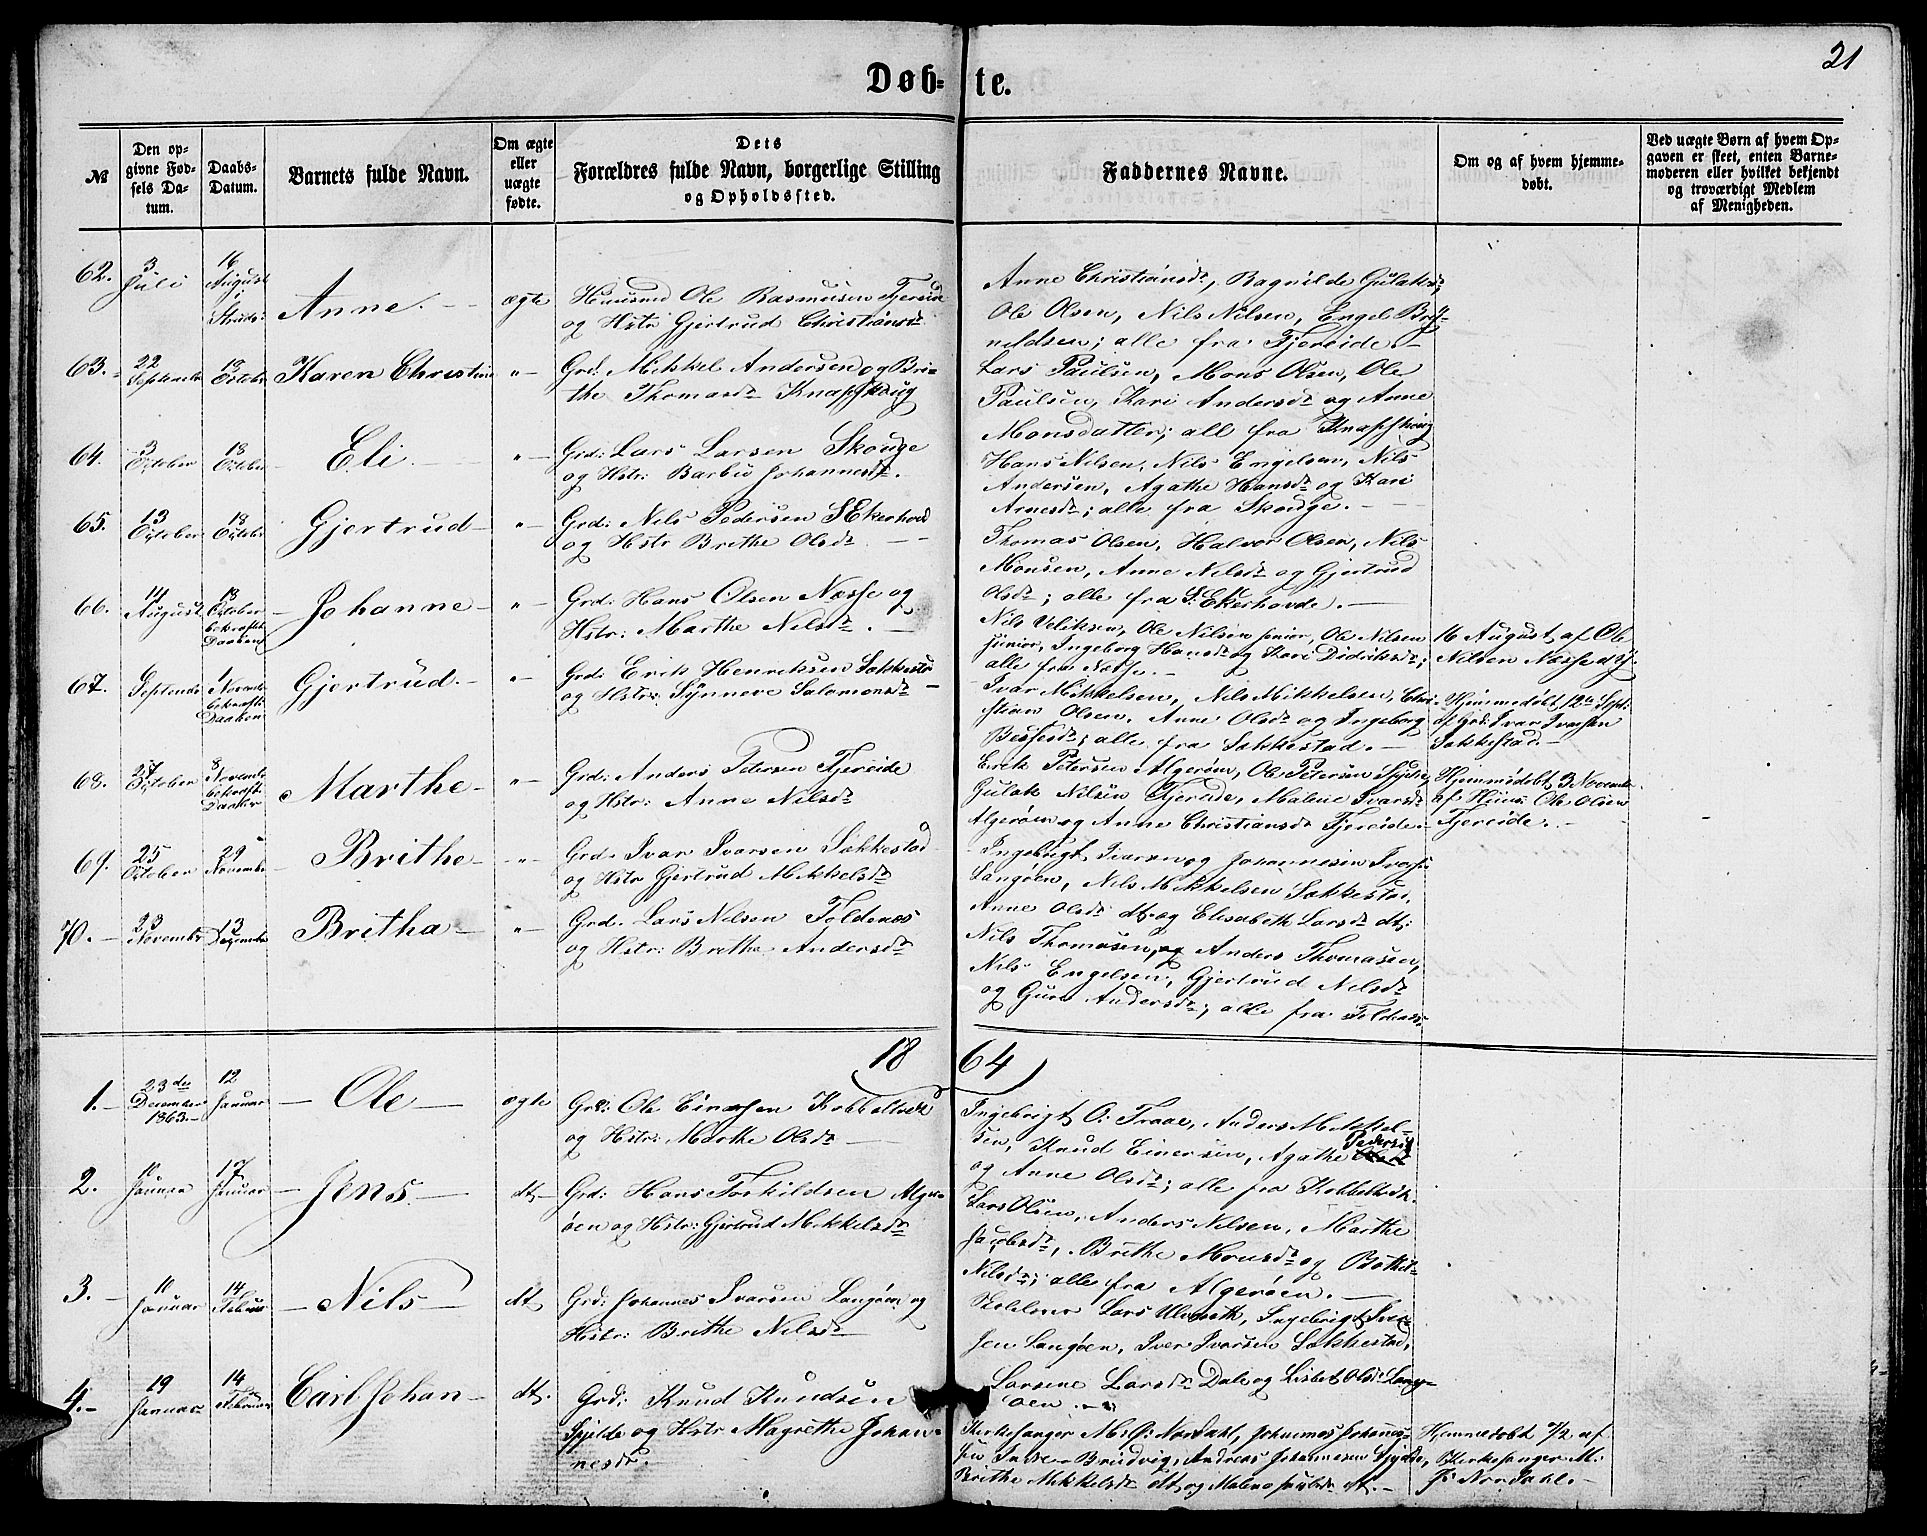 21
Døb-te.
№
Den op-
givne Fød-
sels Da-
tum.
Daabs-
Datum.
Barnets fulde Navn.
Om ægte
eller
uægte
fødte.
Dets
Forældres fulde Navn, borgerlige Stilling
og Opholdssted.
Faddernes Navne.
Om og af hvem hjemme-
døbt.
Ved uægte Børn af hvem Op-
gaven er skeet, enten Barne-
moderen eller hvilket bekjendt
og troværdigt Medlem
af Menigheden.
62. 3 Juli
16 August i
Anne.
ægte
Huusmd Ole Rasmusen Fjereide
og Hstr Gjertrud Christiansdr
Anne Christiansdr, Ragnilde Gulaksdr
Ole Olsen, Nils Nilsen, Engel Bry-
nildsen; alle fra Fjereide.-
63. 22 September
13 October
Karen Christine
"
Grd: Mikkel Andersen og Bri-
the Thomasdr Knapskoug
Lars Paulsen, Mons Olsen, Ole
Paulsen, Kari Andersdr og Anne
Monsdatter; all fra Knapskoug
64. 3 October
13 October
Eli.
"
Grd: Lars Larsen Skouge
og Hstr: Barbro Johannesdr.
Hans Nilsen, Nils Engelsen, Nils
Andersen, Agathe Hansdr og Kari
Arnesdr; alle fra Skouge.-
65. 13 October
13 October
Gjertrud
"
Grd: Nils Pedersen S Ekerhovd
og Hstr Brithe Olsdr
Thomas Olsen, Halvor Olsen, Nils
Monsen, Anne Nilsdr og Gjertrud
Olsdr; alle fra S: Ekerhovde.
66. 14 August
13 October
bekræftet
Daaben
Johanne
"
Grd: Hans Olsen Næsse og
Hstr: Marthe Nilsdr.
Nils Veliksen, Ole Nilsen senior, Ole Nilsen
junior, Ingeborg Hansdr og Kari Didriksdr;
alle fra Næsse.-
16 August af Ole
Nilsen Næsse
67. September
1 Novembr
bekræft:
Daaben
Gjertrud.
"
Grd: Erik Henriksen Sakkestad
og Hstr: Synneve Salomonsdr
Ivar Mikkelsen, Nils Mikkelsen, Chri-
stian Olsen, Anne Olsdr og Ingeborg
alle fra Sakkestad.-
Hjemmedøbt 12te Sept:
af Grd: Ivar Ivarsen
Sakkestad.-
68. 27 October
8 Novembr
bekræft:
Daaben
Marthe
"
Grd: Anders Petersen Fjereide
og Hstr: Anne Nilsdr
Erik Petersen Algerøen, Ole Petersen
Gulak Nilsen Fjereide, Malene Ivarsdr
Algerøen og Anne Christiansdr Fjereide.-
Hjemmedøbt 3 Novembr
af Huus: Ole Olsen
Fjereide.
69. 25 October
29 Novembr
Brithe
"
Grd. Ivar Ivarsen Sakkestad
og Hstr Gjertrud Mikkelsdr
Ingebrigt Ivarsen og Johannesen Ivars:
Langøen, Nils Mikkelsen Sakkestad,
Anne Olsdr dt. og Elisabeth Larsdr dt:
70. 23 November
13 Decembr
Britha
"
Grd. Lars Nilsen Foldenæs
og Hstr: Brithe Andersdr
Nils Thomasen, og Anders Thomasen,
Nils Engelsen, Gjertrud Nilsdr
og Guro Andersdr; alle fra Foldenæs
1864
1. 23de December 1863.-
12 Januar
Ole
ægte
Grd: Ole Einersen Kobbeltvedt
og Hstr: Marthe Olsdr
Ingebrigt O: Traae, Anders Mikkel-
sen, Knud Einersen, Agathe Pedersdr
og Anne Olsdr; alle fra Kobbeltvedt.
2. 10 Januar
17 Januar
Jens
dt.
Grd: Hans Torkildsen Alger-
øen og Hstr: Gjertrud Mikkelsdr
Lars Olsen, Anders Nilsen, Marthe
Jacobsdr, Brithe Monsdr og Bothil-
Nilsdr; alle fra Algerøen.
3. 10 Januar
14 Februar
Nils
dt.
Grd: Johannes Ivarsen Langøen og
Hstr: Brithe Nilsdr
Skolelærer Lars Ulveseth, Ingebrigt Iver-
sen Langøen, Iver Ivarsen Sakkestad,
Larsine Larsdr Dale og Lisbet Olsdr Lang-
øen.-
4. 19 Januar
14 Februar
Carl Johan
dt.
Grd: Knud Knudsen
Spjelde og Hstr Magrethe Johan-
nesdr.
Kirkesanger M: J: Nordahl, Johannes Johannes-
sen Indre- Brudvig, Andreas Johannesen Spjelde,
Brithe Mikkelsdr dt. og Malena Jacobsdr dt.-
Hjemmedøbt 7/2 af
Kirkesanger M:
J: Nordahl.-